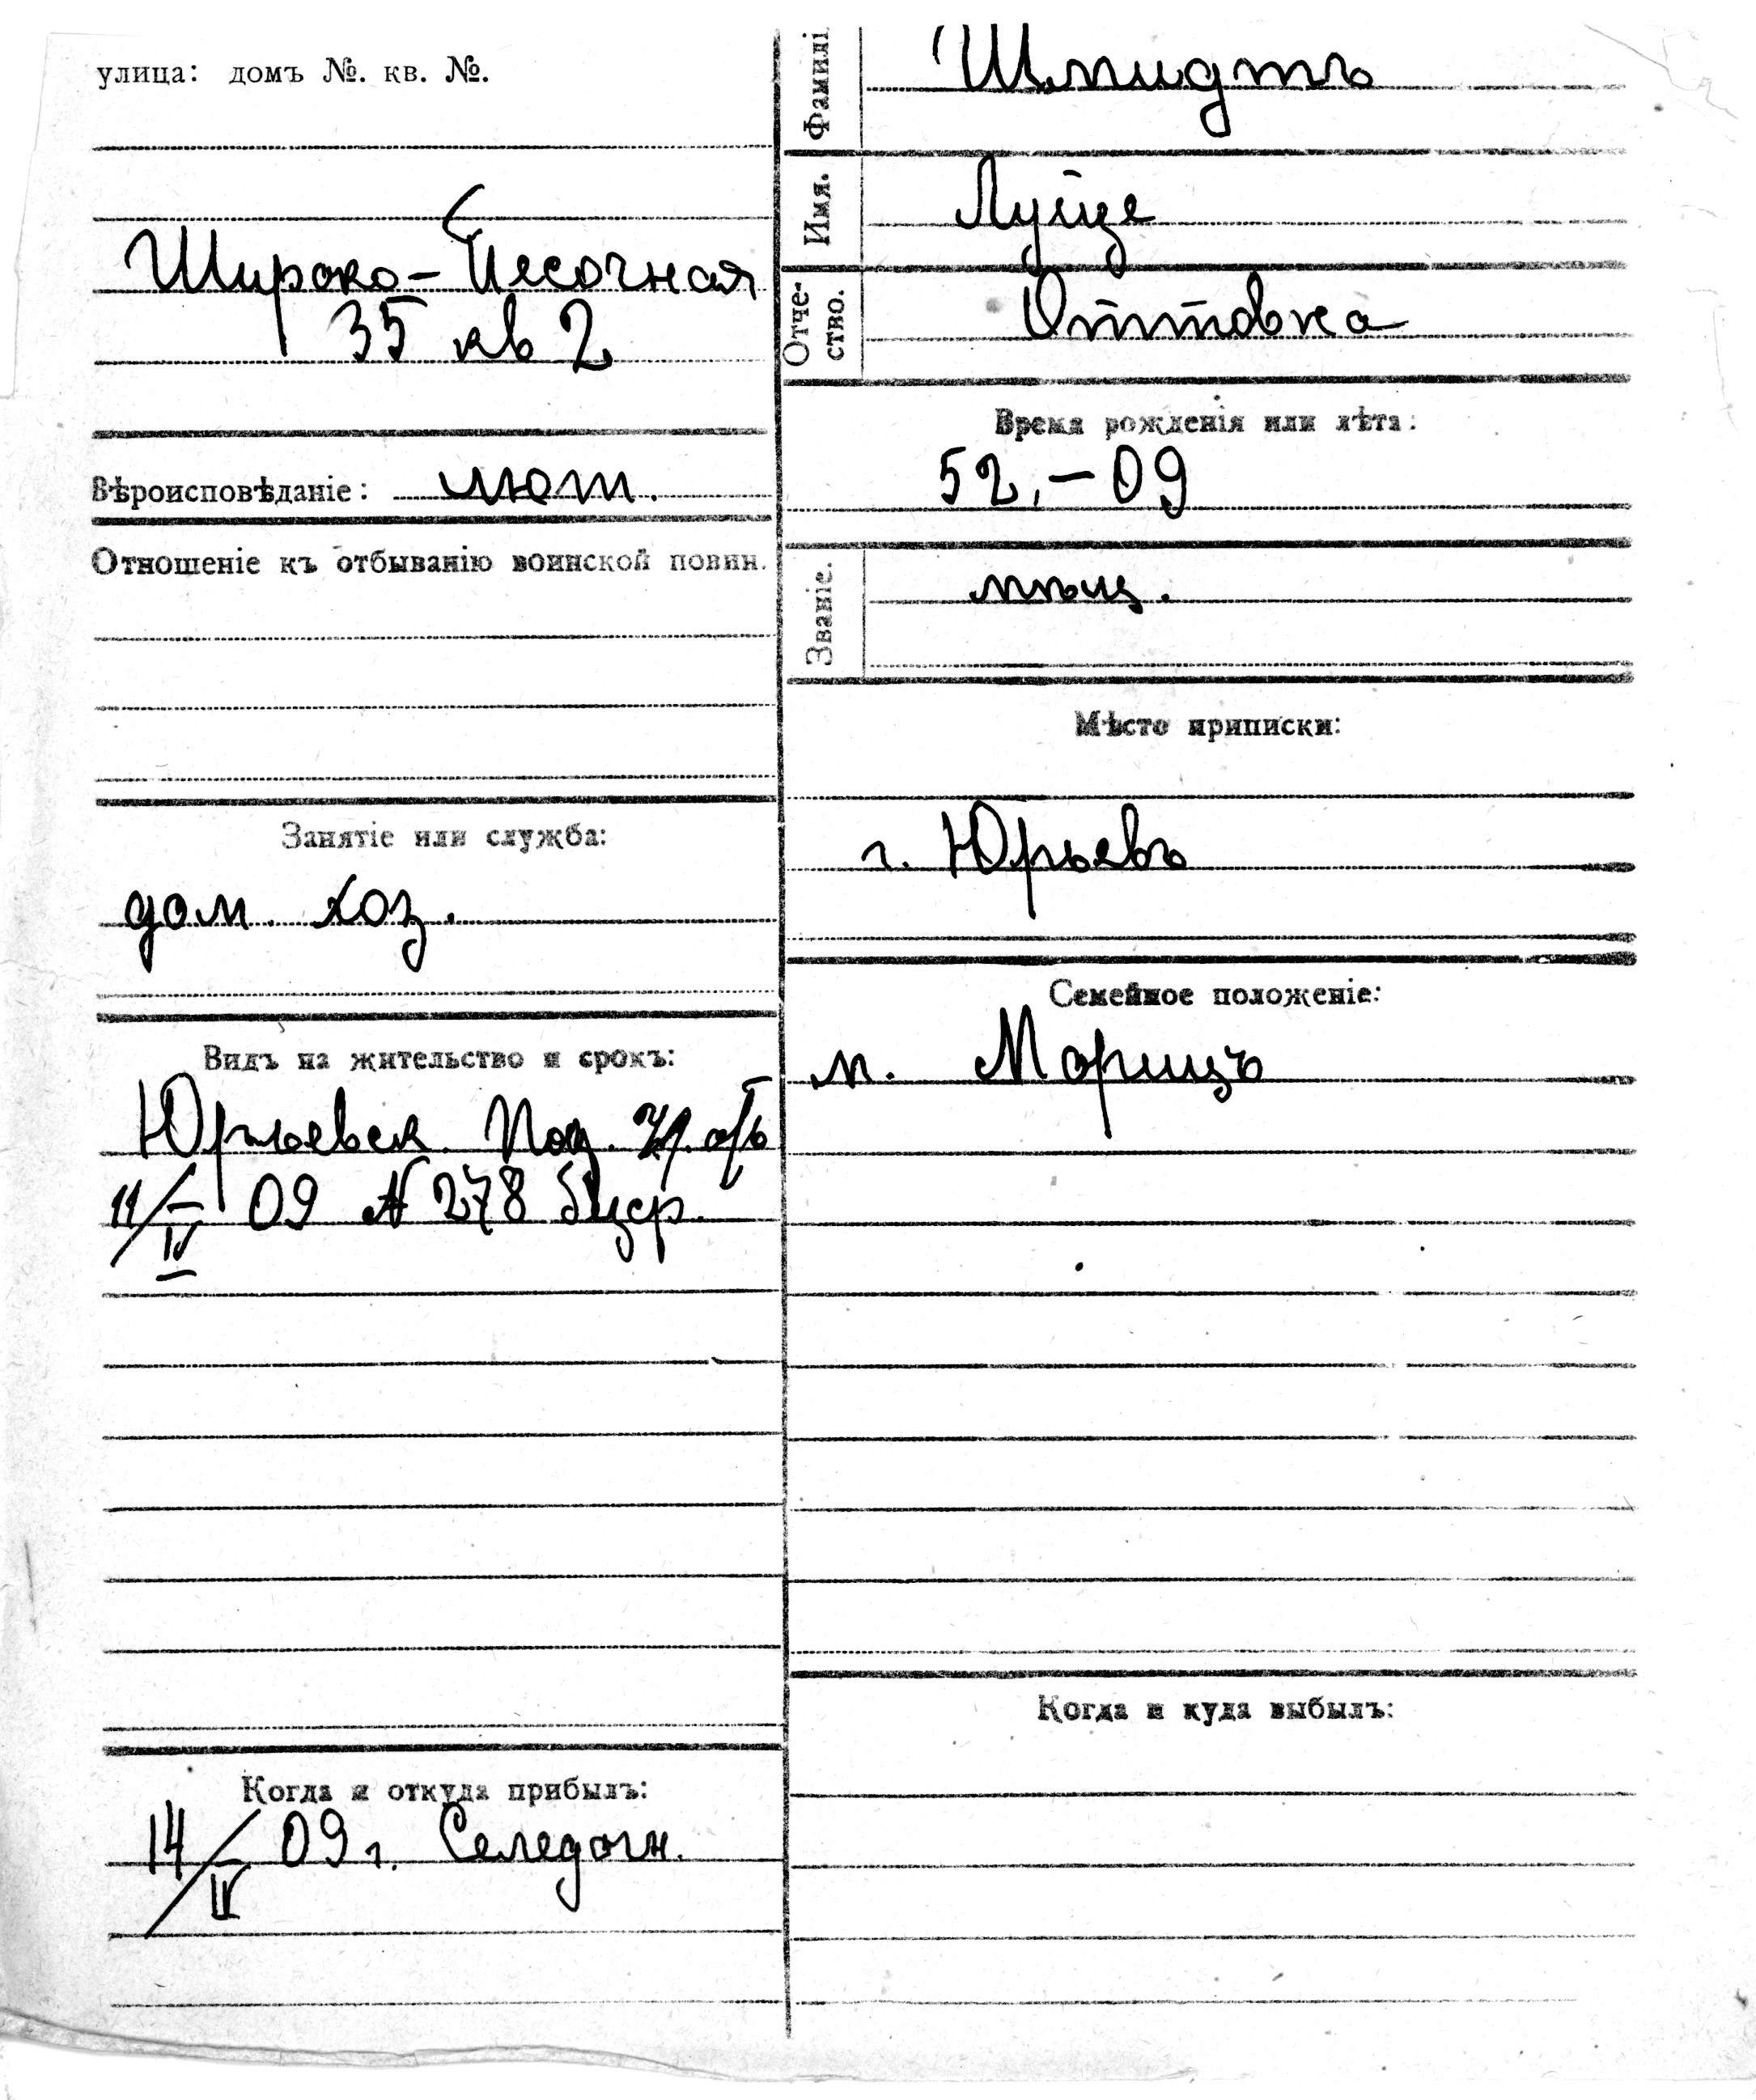 улица: домъ №. кв. №.
Широко-Песочная
35 кв 2
Вѣроисповѣданіе: лют.
Отношеніе къ отбыванію воинской повин.
Занятіе или служба:
дом. хоз.
Видъ на жительство и срокъ:
Юрьевск. Под.
11/IV 09 № 278 бзср.
Когда и откуда прибылъ:
14/IV 09 г. Селедочн.
Фамилі
Шмидтъ
Имя.
Луіце
Отче-
ство.
Оттовна
Время рожденія или лѣта:
52,-09
Званіе.
мѣщ.
Мѣсто приписки:
г. Юрьевъ
Семейное положеніе:
м. Морицъ
Когда и куда выбылъ: